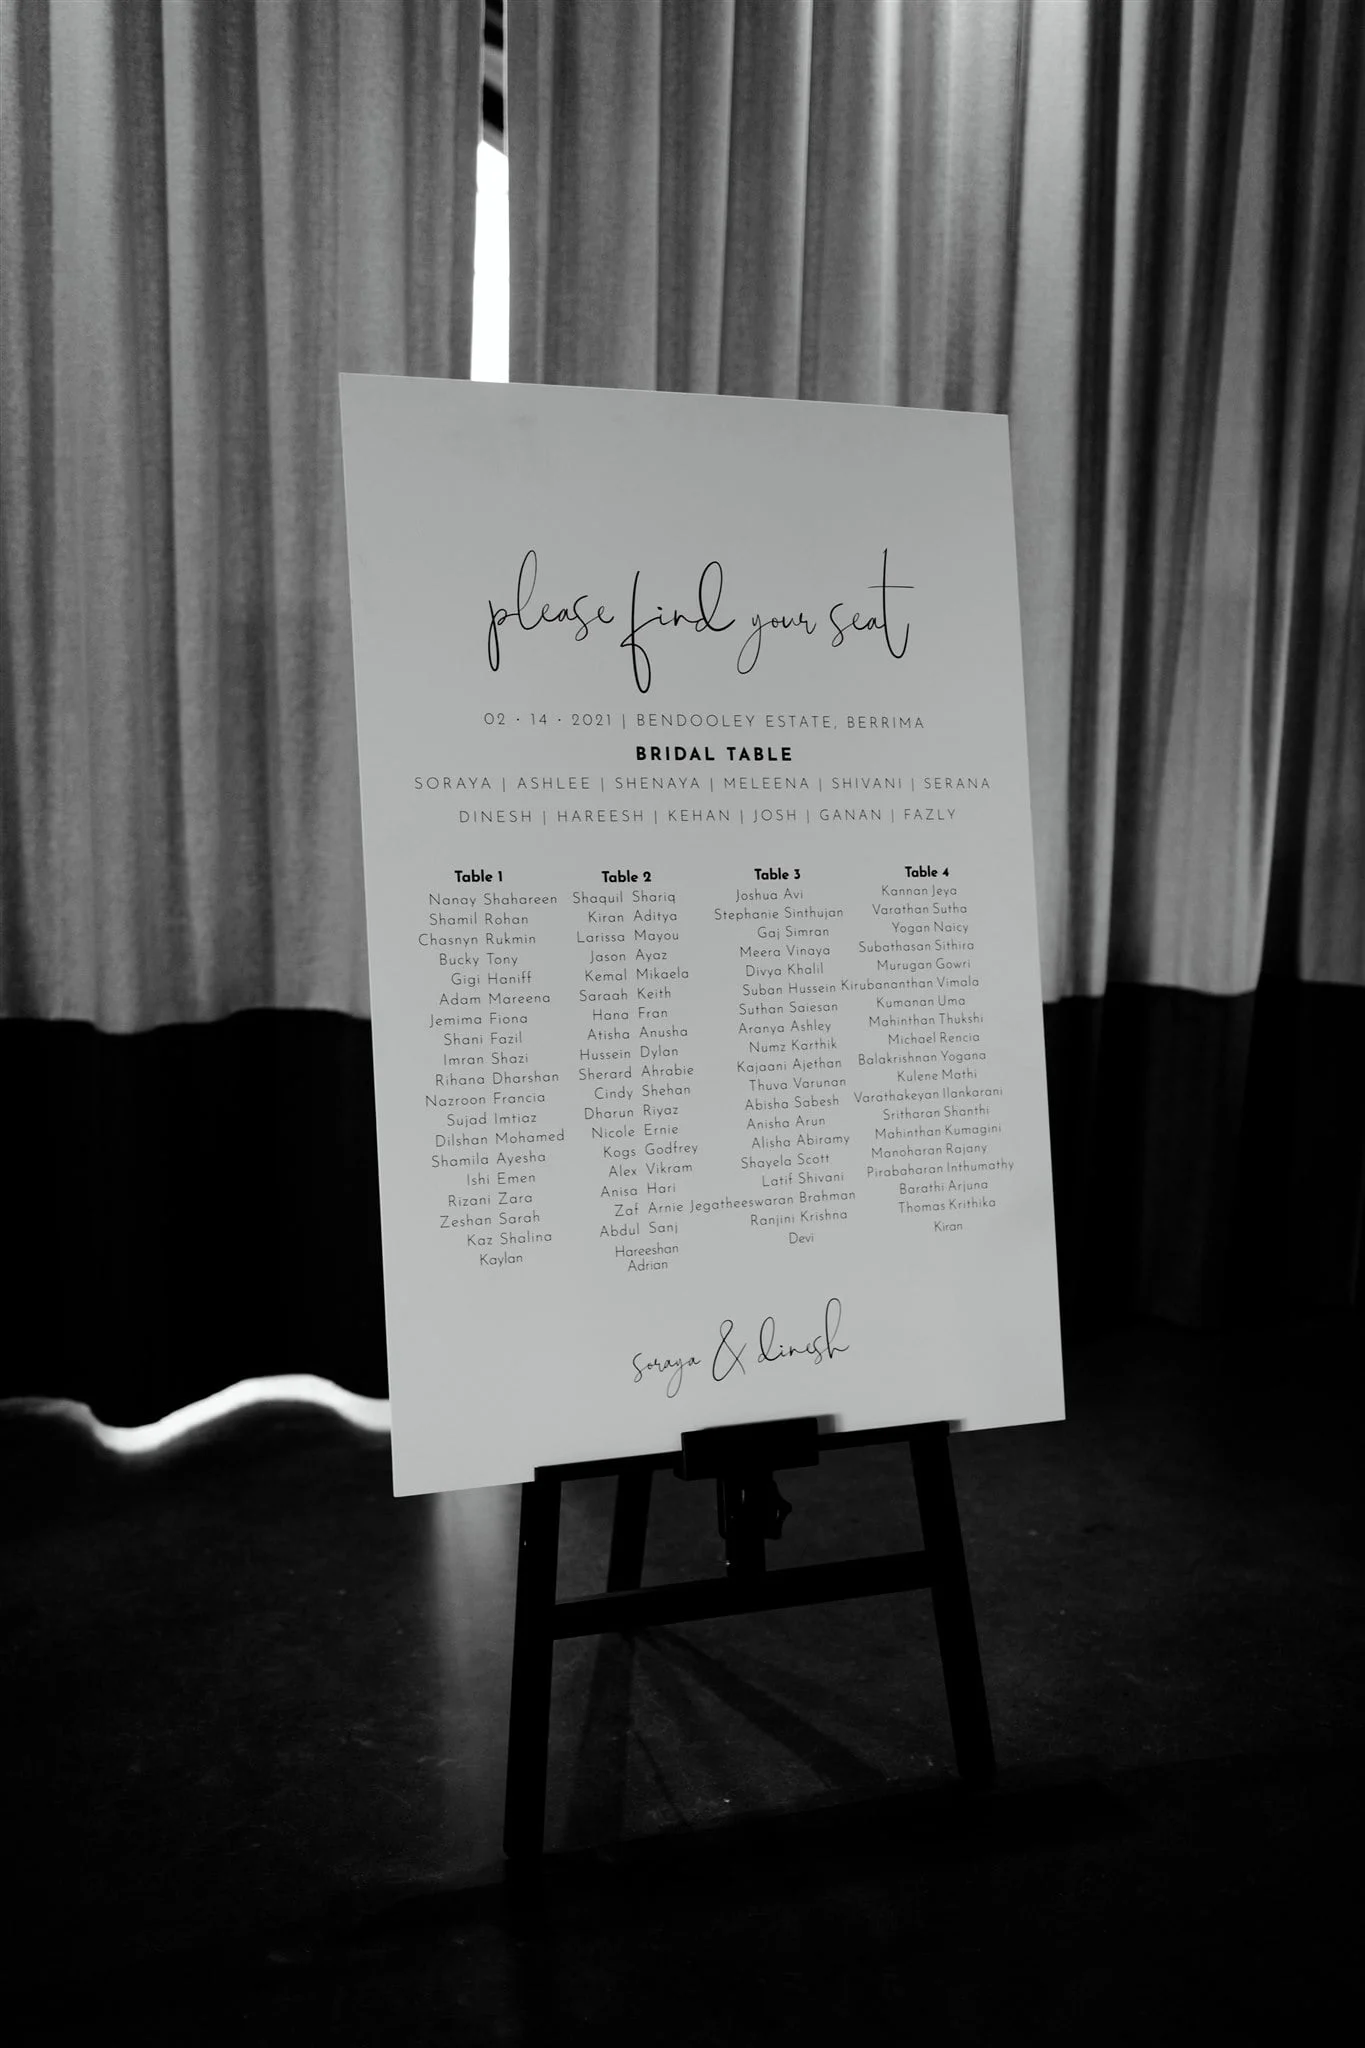 please find your seat
02 · 14 · 2021 | BENDOOLEY ESTATE, BERRIMA
BRIDAL TABLE
SORAYA | ASHLEE | SHENAYA | MELEENA | SHIVANI | SERANA
DINESH | HAREESH | KEHAN | JOSH | GANAN | FAZLY
Table 1
Nanay Shahareen
Shamil Rohan
Chasnyn Rukmin
Bucky Tony
Gigi Haniff
Adam Mareena
Jemima Fiona
Shani Fazil
Imran Shazi
Rihana Dharshan
Nazroon Francia
Sujad Imtiaz
Dilshan Mohamed
Shamila Ayesha
Ishi Emen
Rizani Zara
Zeshan Sarah
Kaz Shalina
Kaylan
Table 2
Shaquil Shariq
Kiran Aditya
Larissa Mayou
Jason Ayaz
Kemal Mikaela
Saraah Keith
Hana Fran
Atisha Anusha
Hussein Dylan
Sherard Ahrabie
Cindy Shehan
Dharun Riyaz
Nicole Ernie
Kogs Godfrey
Alex Vikram
Anisa Hari
Zaf Arnie
Abdul Sanj
Hareeshan
Adrian
Table 3
Joshua Avi
Stephanie Sinthujan
Gaj Simran
Meera Vinaya
Divya Khalil
Suban Hussein
Suthan Saiesan
Aranya Ashley
Numz Karthik
Kajaani Ajethan
Thuva Varunan
Abisha Sabesh
Anisha Arun
Alisha Abiramy
Shayela Scott
Latif Shivani
Jegatheeswaran Brahman
Ranjini Krishna
Devi
Table 4
Kannan Jeya
Varathan Sutha
Yogan Naicy
Subathasan Sithira
Murugan Gowri
Kirubananthan Vimala
Kumanan Uma
Mahinthan Thukshi
Michael Rencia
Balakrishnan Yogana
Kulene Mathi
Varathakeyan Ilankarani
Sritharan Shanthi
Mahinthan Kumagini
Manoharan Rajany
Pirabaharan Inthumathy
Barathi Arjuna
Thomas Krithika
Kiran
soraya & dinesh